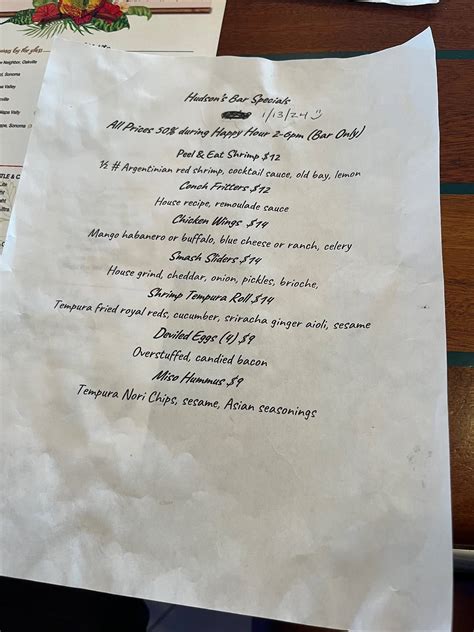 wines by the glass
Neighbor, Oakville
Sonoma
Valley
Valley
Napa Valley
Sonoma
Hudson's Bar Specials
1/13/24
All Prices 50% during Happy Hour 2-6pm (Bar Only)
Peel & Eat Shrimp $12
½ # Argentinian red shrimp, cocktail sauce, old bay, lemon
Conch Fritters $12
House recipe, remoulade sauce
Chicken Wings $14
Mango habanero or buffalo, blue cheese or ranch, celery
Smash Sliders $14
House grind, cheddar, onion, pickles, brioche,
Shrimp Tempura Roll $14
Tempura fried royal reds, cucumber, sriracha ginger aioli, sesame
Deviled Eggs (4) $9
Overstuffed, candied bacon
Miso Hummus $9
Tempura Nori Chips, sesame, Asian seasonings